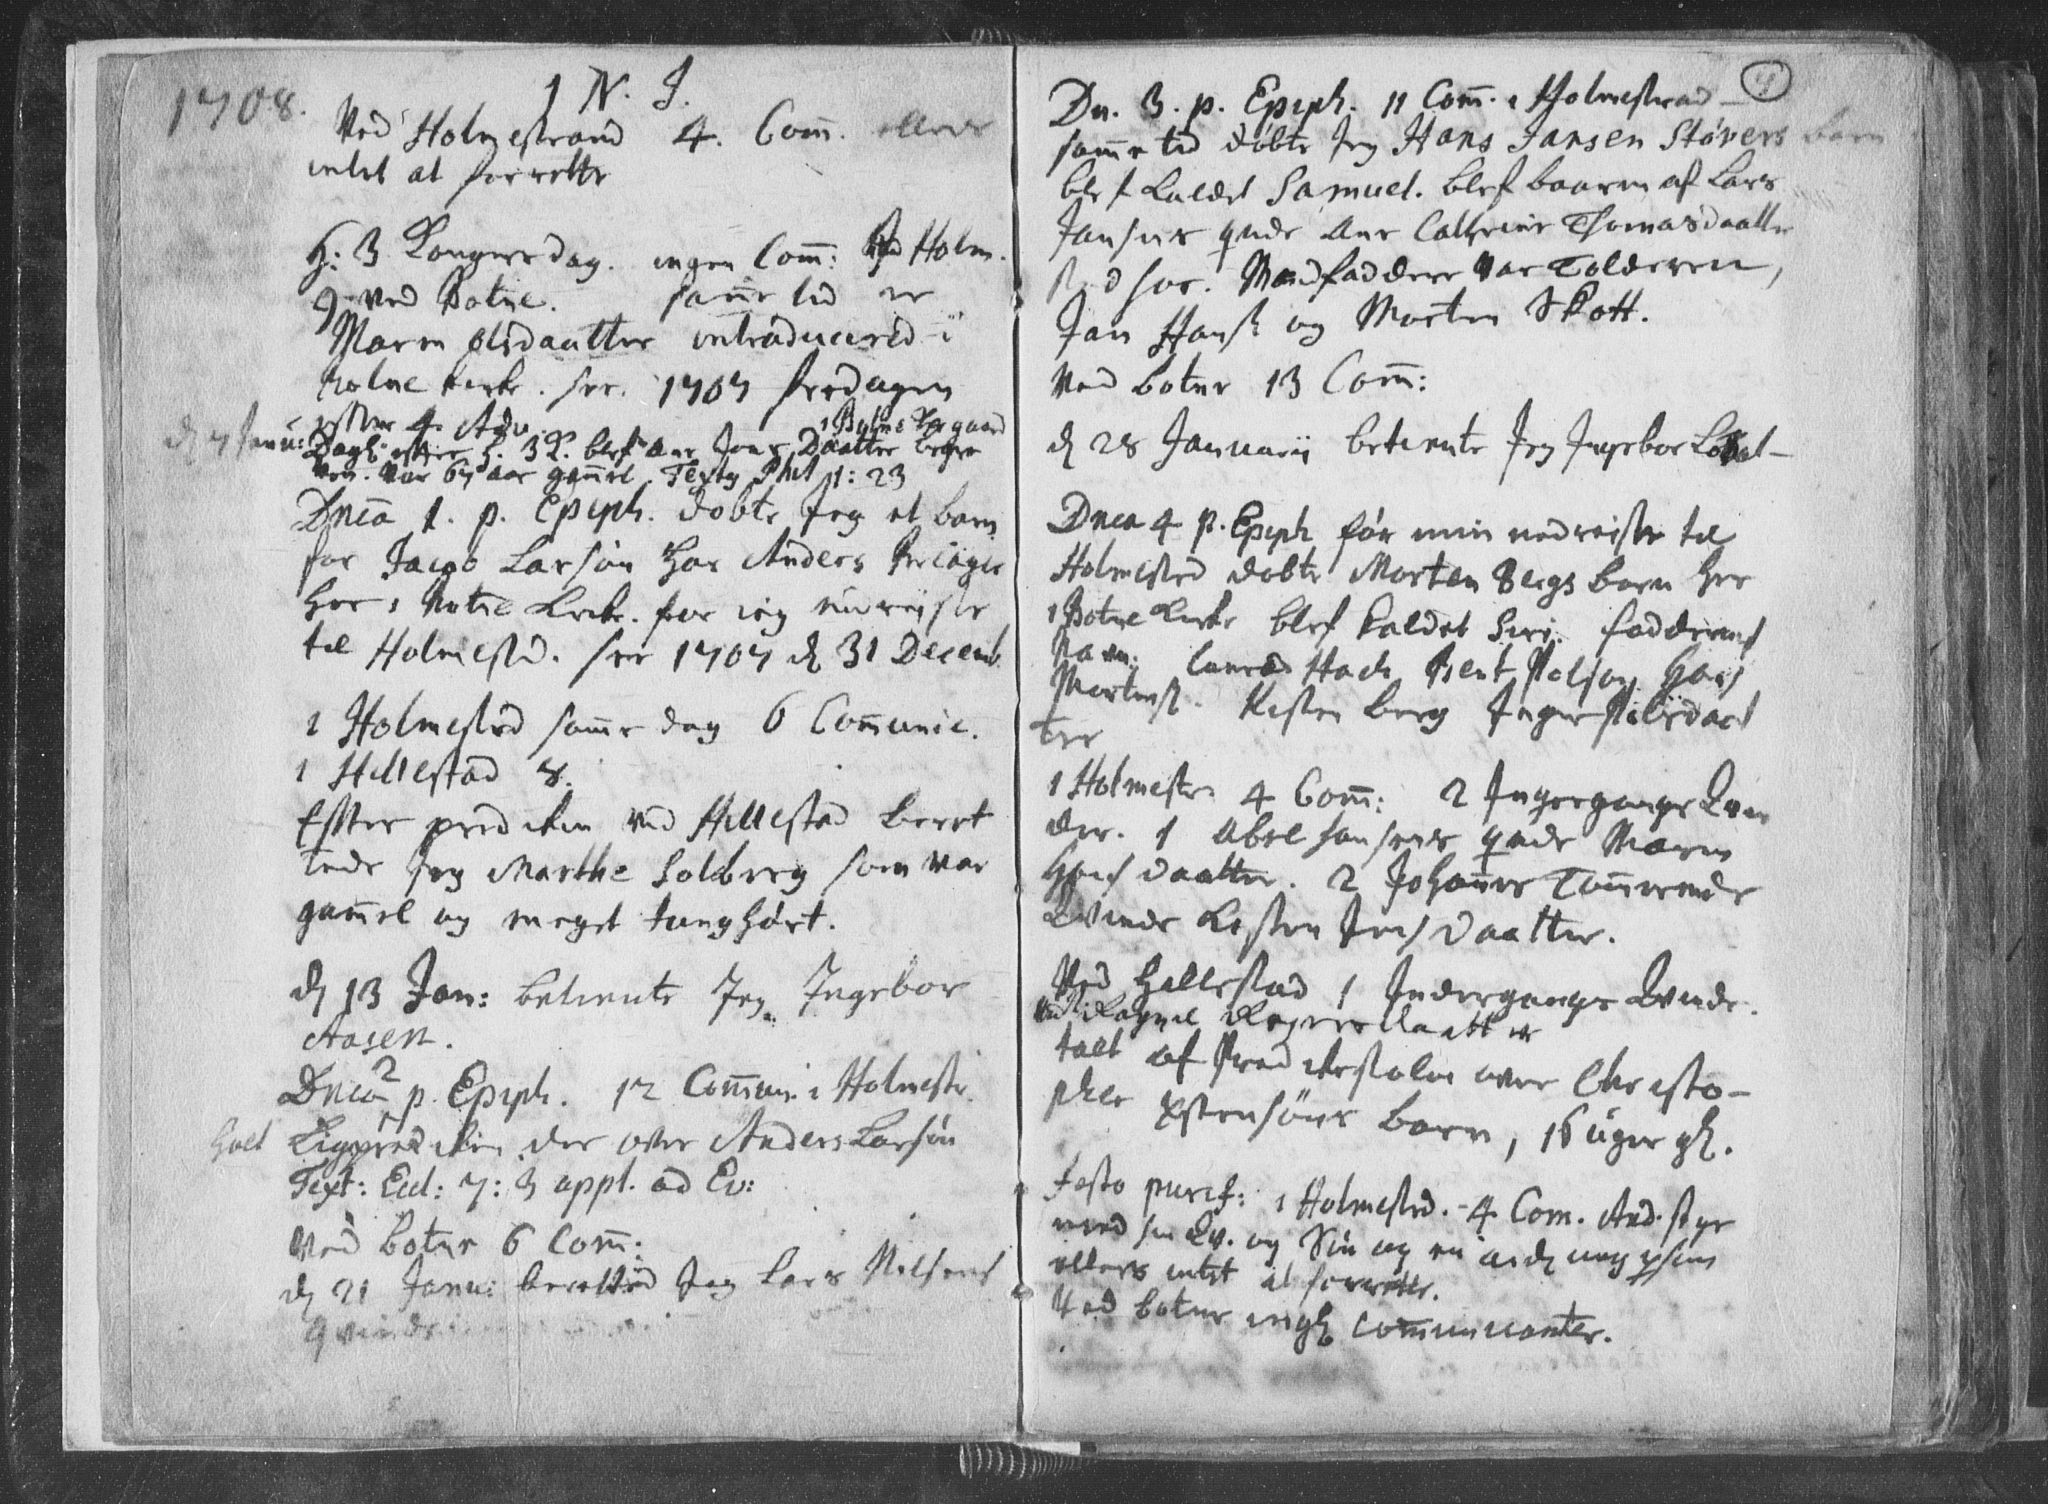 1708.
1 N. J.
Ved Holmestrand 4. Com̄. ellers
intet at forrette
H: 3 Kongers dag. ingen Com̄: Ved Holm.
9 ved Botne. sam̄e tid er
Maren olsdaatter introducered i
botne kirke. see. 1707 fredagen
effter 4 Adv.
d 7 Janu: Dagen effter H. 3 K. blef Ane Jens Daatter begra
ven. Var 67 aar gam̄el. Textg Phil 1: 23
Dnīca 1. p. Epiph. døbte Jeg et barn
for Jacob Larsøn hos Anders
her i Botne Kirke. før ieg nedreiste
til Holmestd. see 1707 d 31 Decemb.
i Holmestrd sam̄e dag 6 Com̄unic.
i Hillestad 8.
Effter prediken ved Hillestad beret
tede Jeg Marthe Solberg som var
gam̄el og meget tunghört.
d 13 Jan: betiente Jeg Ingebor
Aasen.
Dnīca 2 p. Epiph. 12 Com̄un. i Holmestr.
holt Ligprediken der over Anders Larsön
Text: Eccl: 7: 3 appl. ad Ev:
Ved botne 6 Com̄:
d 21 Janu: berettede Jeg Lars Nilsens
qvinde
Dn. 3. p. Epiph. 11 Com̄. i Holmestrand
sam̄e tid døbte Jeg Hans Jansen Støvers barn
blef kaldet Samuel. blef baaren af Lars
Jansens qvde Ane Cathrine Thomasdaatter
stod hos. Mandfaddere var Tolderen,
Jan Hans og Morten Skott.
Ved botne 13 Com̄:
d 28 Januarii betiente Jeg Ingebor
Dnīca 4 p. Epiph før min nedreise til
Holmestrd døbte Morten Bergs barn her
i Botne Kirke blef kaldet Siri. fadderens
Navn: Hach Bent Polson Hans
Mortens. Kisten berg Inger daat
ter
i Holmestr. 4 Com̄: 2 Ingergangs Kvin
der. 1 Abel Hansens qvde Maren
Hans daatter. 2 Johan̄es
Kvinde Kisten Jens daatter.
Ved Hillestad 1 Indergangs Kvinde.
Ragnel daatter
talt af Predikestolen over Christo-
pher barn, 16 üger gl.
Festo purif: i Holmestrd. 4 Com. And.
med sin Kv. og Sön og en
ellers intet at forrette.
Ved botne ingen com̄unicanter.